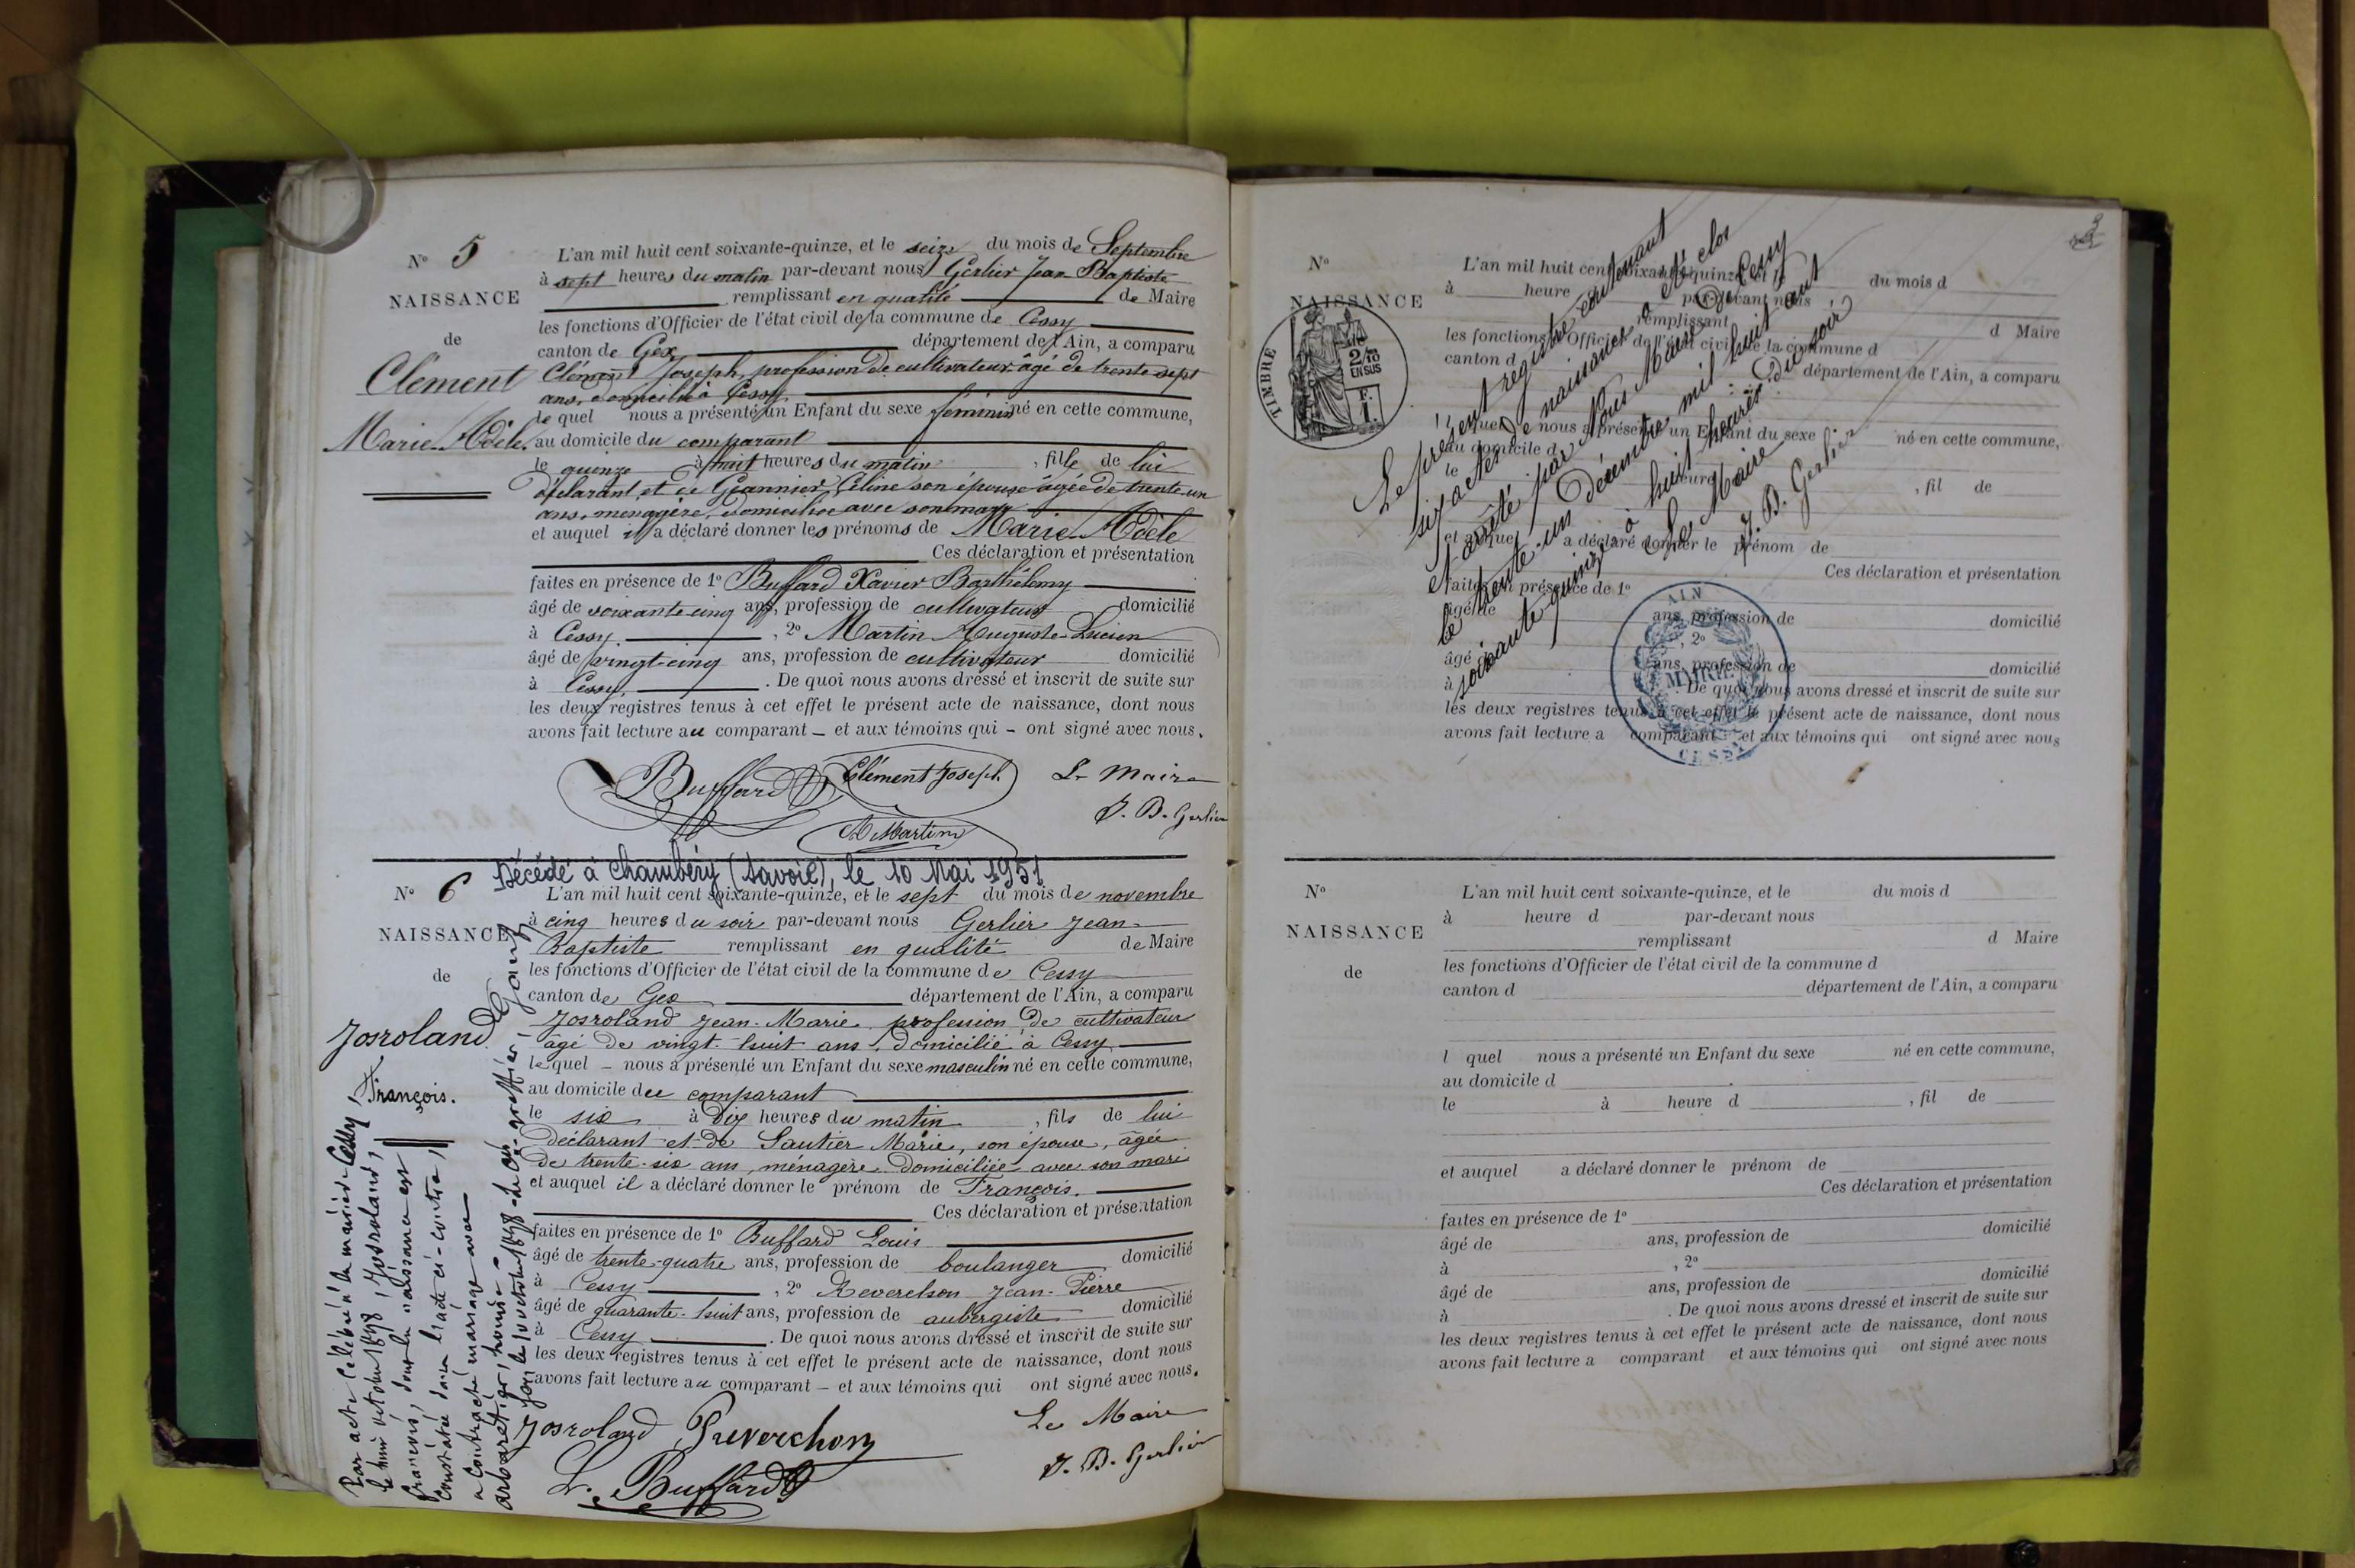 N° 5
NAISSANCE
de
Clément
Marie-Adèle.
L'an mil huit cent soixante-quinze, et le seize du mois de Septembre
à sept heures du matin par-devant nous Gerlier Jean Baptiste
remplissant en qualité de Maire
les fonctions d'Officier de l'état civil de la commune de Cessy
canton de Gex département de l'Ain, a comparu
Clément Joseph, profession de cultivateur âgé de trente-sept
ans, domicilié à Cessy
le quel nous a présenté un Enfant du sexe féminin né en cette commune,
au domicile du comparant
le quinze à huit heures du matin, fille de lui
déclarant et de Céline son épouse âgée de trente-un
ans, ménagère, domiciliée avec son mary
et auquel il a déclaré donner les prénoms de Marie-Adèle
Ces déclaration et présentation
faites en présence de 1° Buffard Xavier Barthélemy
âgé de soixante-cinq ans, profession de cultivateur domicilié
à Cessy, 2° Martin Auguste-Lucien
âgé de vingt-cinq ans, profession de cultivateur domicilié
à Cessy. De quoi nous avons dressé et inscrit de suite sur
les deux registres tenus à cet effet le présent acte de naissance, dont nous
avons fait lecture au comparant – et aux témoins qui – ont signé avec nous.
Buffard Clément Joseph Le Maire
J. B. Gerlier
A Martin
Décédé à Chambéry (Savoie), le 10 Mai 1951
N° 6
NAISSANCE
de
Josroland
François.
L'an mil huit cent soixante-quinze, et le sept du mois de novembre
à cinq heures du soir par-devant nous Gerlier Jean-
Baptiste remplissant en qualité de Maire
les fonctions d'Officier de l'état civil de la commune de Cessy
canton de Gex département de l'Ain, a comparu
Josroland Jean-Marie profession de cultivateur
âgé de vingt-huit ans, domicilié à Cessy
le quel – nous a présenté un Enfant du sexe masculin né en cette commune,
au domicile du comparant
le six à dix heures du matin, fils de lui
déclarant et de Sautier Marie, son épouse, âgée
de trente-six ans, ménagère domiciliée avec son mari
et auquel il a déclaré donner le prénom de François.
Ces déclaration et présentation
faites en présence de 1° Buffard Louis
âgé de trente-quatre ans, profession de boulanger domicilié
à Cessy, 2° Reverchon Jean-Pierre
âgé de quarante-huit ans, profession de aubergiste domicilié
à Cessy. De quoi nous avons dressé et inscrit de suite sur
les deux registres tenus à cet effet le présent acte de naissance, dont nous
avons fait lecture au comparant – et aux témoins qui ont signé avec nous.
Josroland Reverchon Le Maire
L. Buffard J. B. Gerlier
Par acte célébré à la mairie de Cessy,
le huit octobre 1898, Josroland,
François, dont la naissance est
constatée dans l'acte ci-contre,
a contracté mariage avec
greffier
3
Le présent registre contenant
six actes de naissances a été clos
et arrêté par Nous Maire de Cessy
le trente-un décembre mil huit cent
soixante-quinze à huit heures du soir
Le Maire
J. B. Gerlier
TIMBRE
2/10
EN SUS
F.
1.
AIN
MAIRIE
CESSY
N°
NAISSANCE
L'an mil huit cent soixante-quinze, et le du mois d
à heure d par-devant nous
remplissant d Maire
les fonctions d'Officier de l'état civil de la commune d
canton d département de l'Ain, a comparu
l quel nous a présenté un Enfant du sexe né en cette commune,
au domicile d
le heure d, fil de
et auquel a déclaré donner le prénom de
Ces déclaration et présentation
faites en présence de 1°
âgé de ans, profession de domicilié
, 2°
âgé ans, profession de domicilié
à De quoi nous avons dressé et inscrit de suite sur
les deux registres tenus à cet effet le présent acte de naissance, dont nous
avons fait lecture a comparant et aux témoins qui ont signé avec nous
N°
NAISSANCE
de
L'an mil huit cent soixante-quinze, et le du mois d
à heure d par-devant nous
remplissant d Maire
les fonctions d'Officier de l'état civil de la commune d
canton d département de l'Ain, a comparu
l quel nous a présenté un Enfant du sexe né en cette commune,
au domicile d
le à heure d, fil de
et auquel a déclaré donner le prénom de
Ces déclaration et présentation
faites en présence de 1°
âgé de ans, profession de domicilié
à, 2°
âgé de ans, profession de domicilié
à. De quoi nous avons dressé et inscrit de suite sur
les deux registres tenus à cet effet le présent acte de naissance, dont nous
avons fait lecture a comparant et aux témoins qui ont signé avec nous